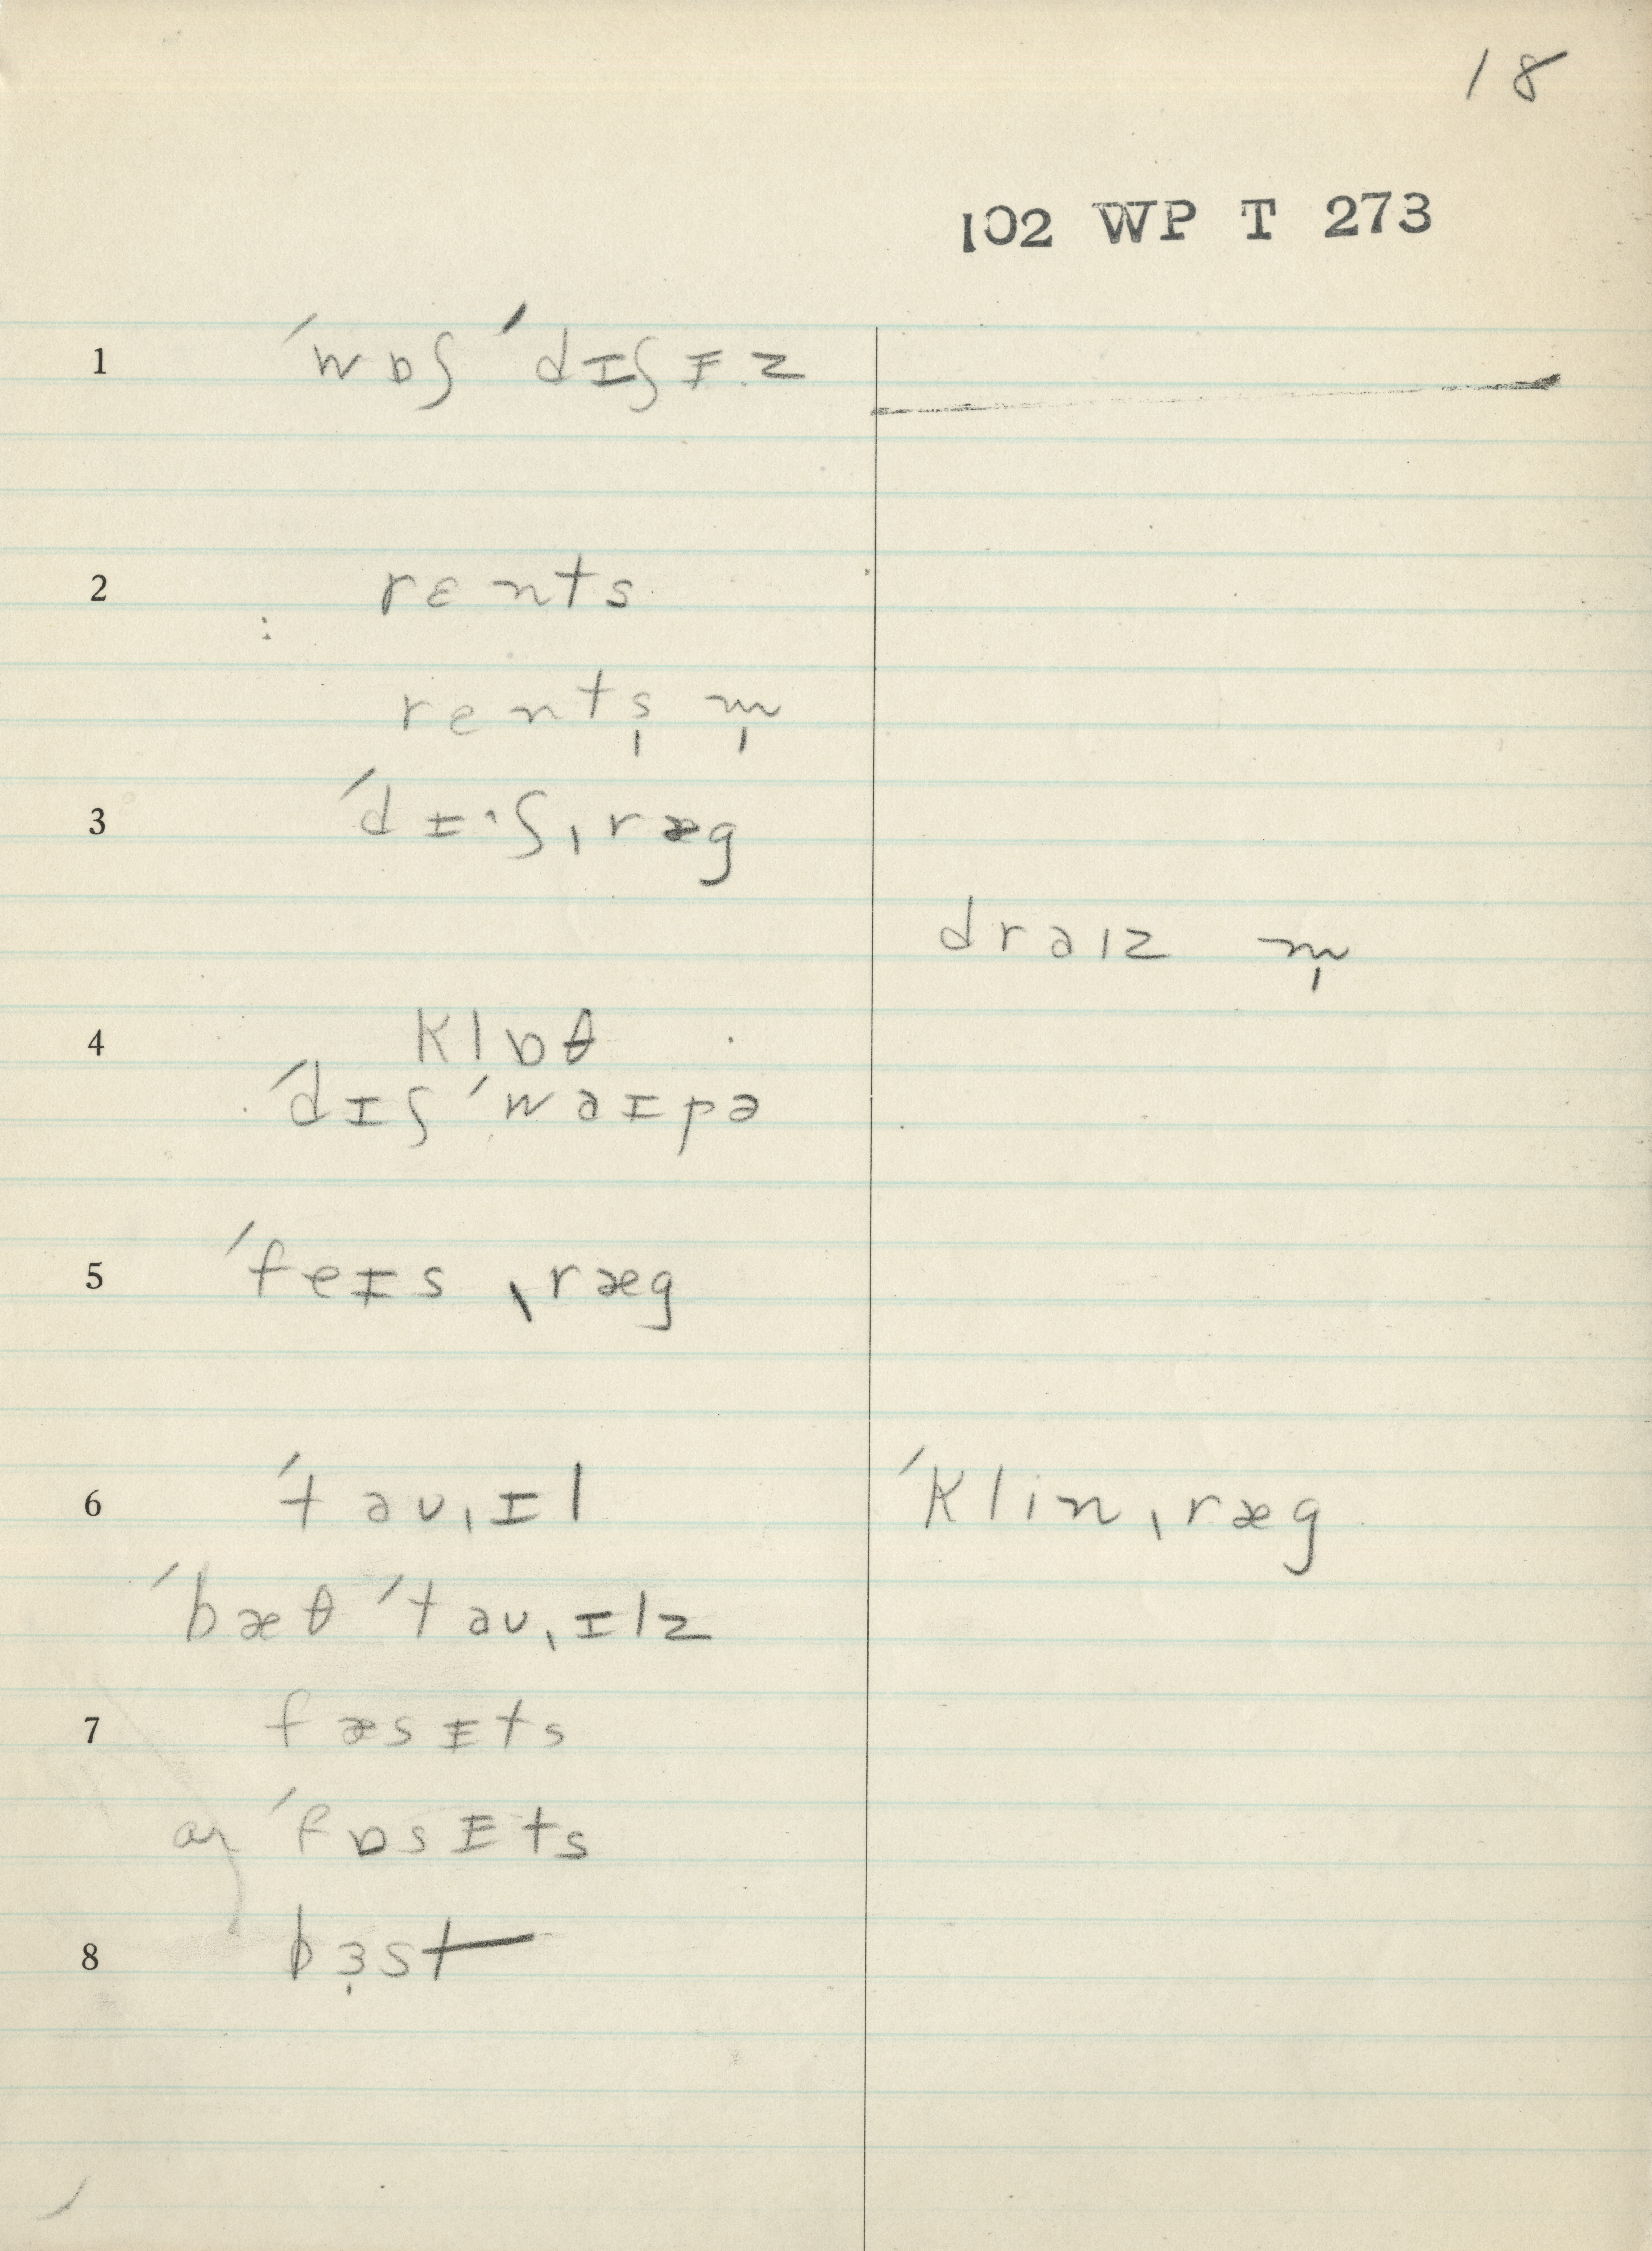 18
102 WP T 273
1 ˈwɒʃ ˈdɪʃɪ̵z
2 rɛnts
rents̩ m̩
3 ˈdɪ·ʃˌræg
draɪz m̩
4 klɒθ
ˈdɪʃ ˈwaɪpə
5 ˈfeɪs ˌræg
6 ˈtaʊˌɪl ˈklinˌræg
ˈbæθ ˈtaʊˌɪlz
7 fæsɪ̵ts
ar ˈfɒsɪ̵ts
8 bɜst